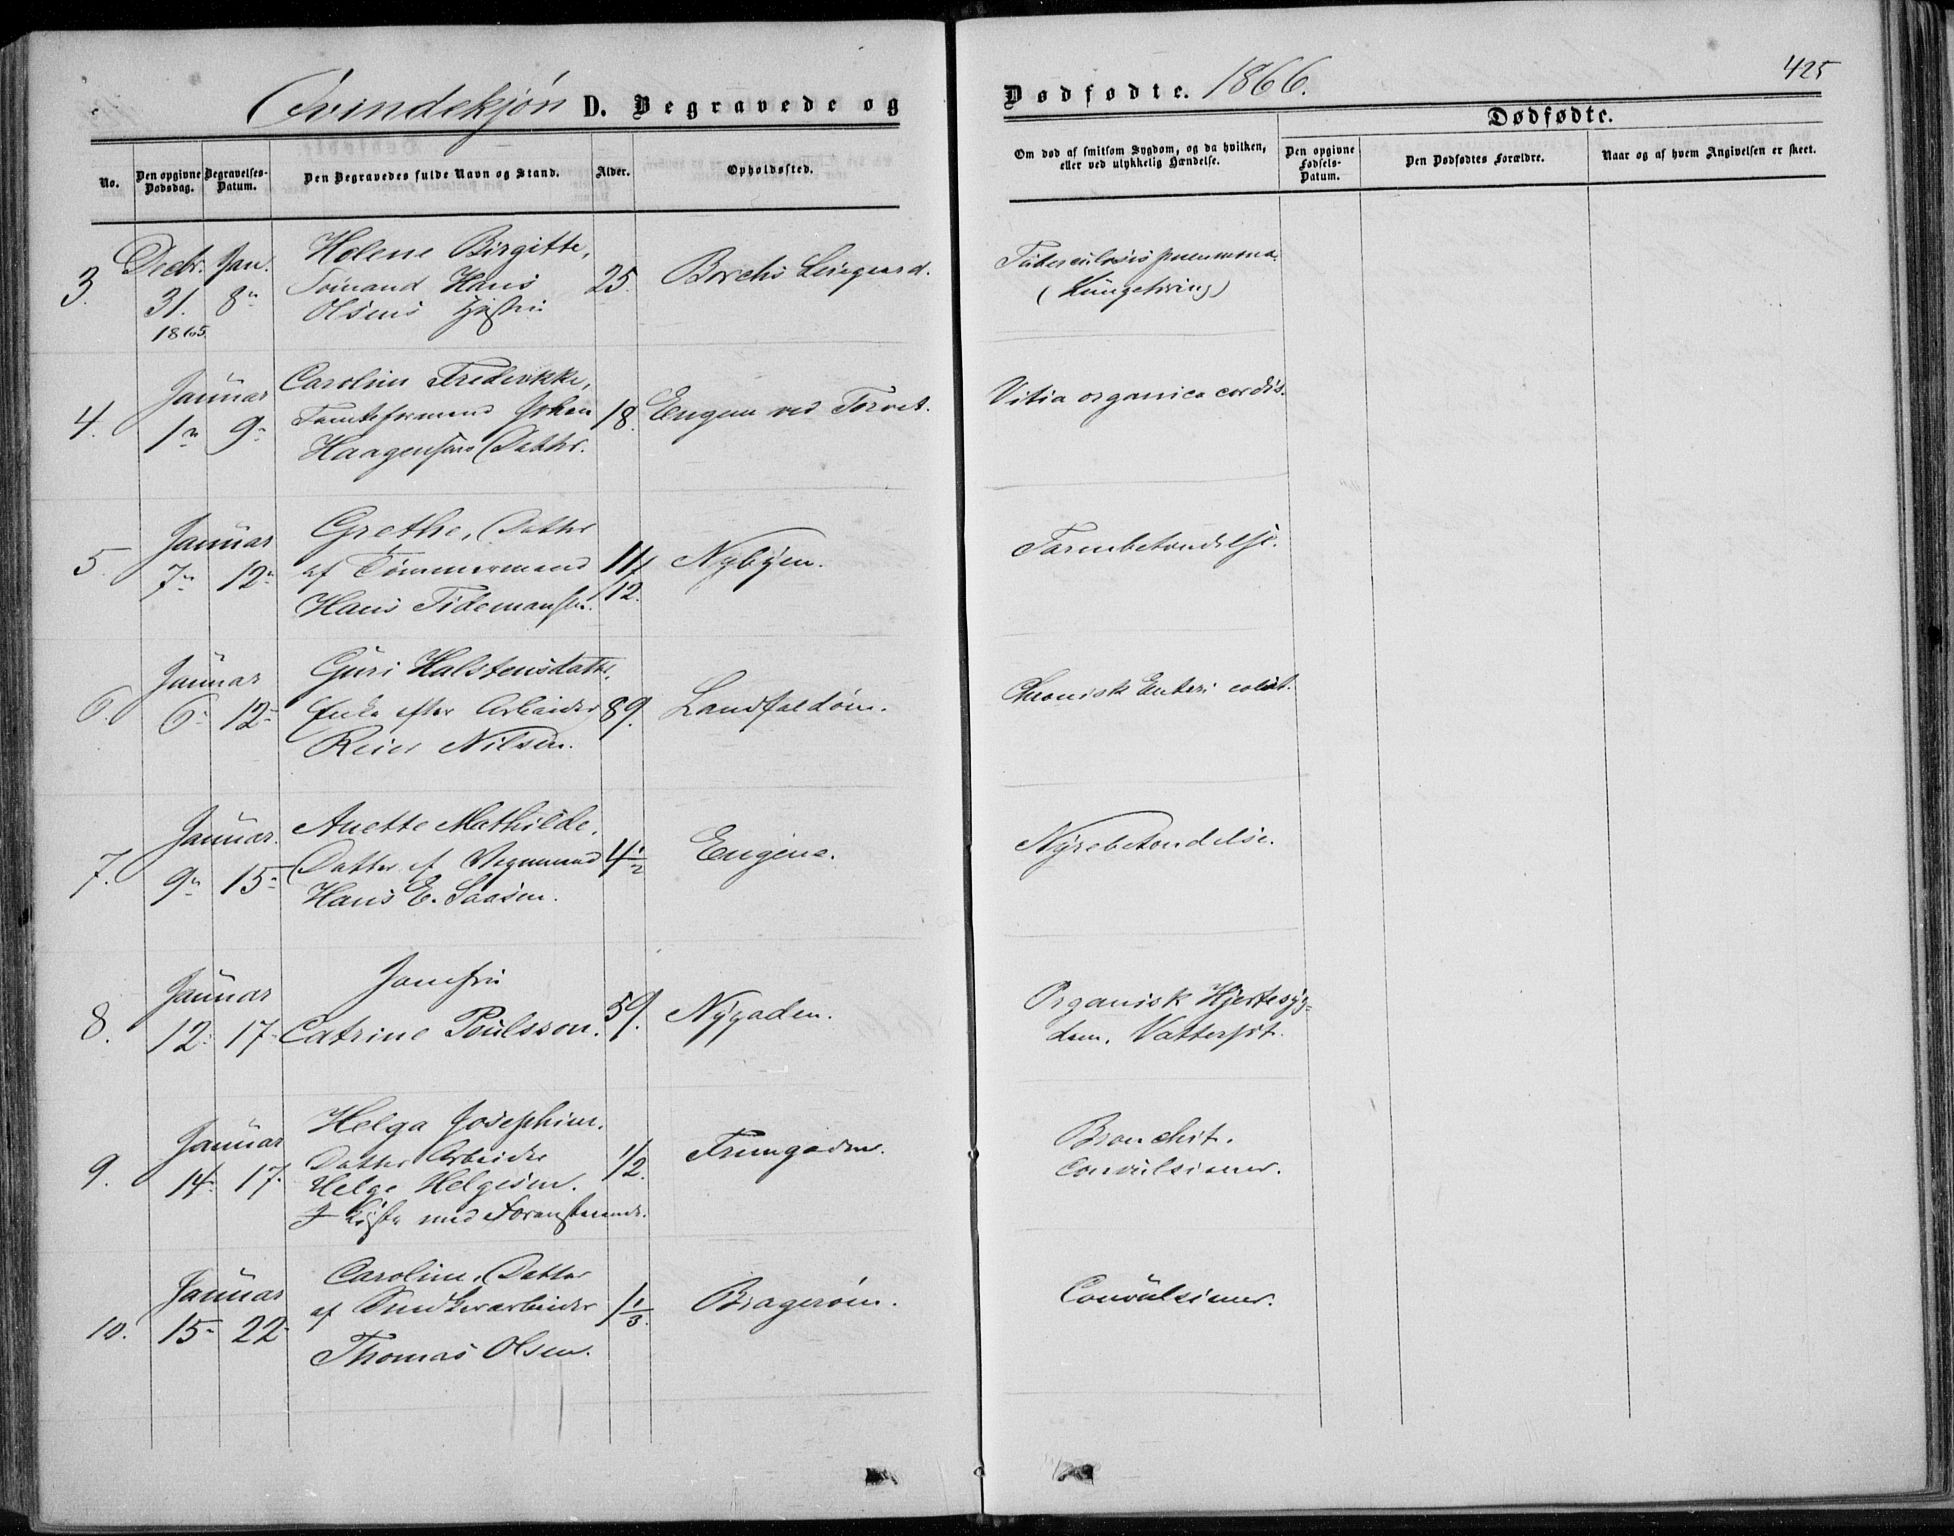 Qvindekjøn D. Begravede og
Dødfødte. 1866.
425
No.
Den opgivne Dødsdag.
Begravelses-Datum.
Den Begravedes fulde Navn og Stand.
Alder.
Opholdssted.
Om død af smitsom Sygdom, og da hvilken,
eller ved ulykkelig Hændelse.
Dødfødte.
Den opgivne Fødsels-Datum.
Den Dødfødtes Forældre.
Naar og af hvem Angivelsen er skeet.
3. Decbr. 31. 1865. Jan. 8
Helene Birgitte,
Sømand Hans
Olsens Hustru
25.
Borchs
Tuberculosis pneumona.
(Lungetæring)
4. Januar 1 9
Caroline Fredrikke,
Tomteformand Johan
Haagensens Datter.
18.
Engene ved Torvet.
Vitia organica cordis.
5. Januar 7 12
Grethe, Datter
af Tømmermand
Hans Tidemansen.
11/12.
Nybyen.
Tarmbetændelse.
6. Januar 6 12
Guri Halstensdatt.
Enke efter Arbeider
Reier Nilsen.
89.
Landfaldøen.
Chronisk Enteri colit.
7. Januar. 9 15
Anette Mathilde,
Datter af Vognmand
Hans E. Aasen.
4 1/2
Engene.
Nyrebetændelse.
8. Januar 12 17
Jomfru
Catrine Poulsson.
59.
Nygaden.
Organisk Hjertesyg-
dom, Vattersot.
9. Januar 14 17.
Helga Josephine.
Datter Arbeider
Helge Helgesen.
I Kiste med Foranstaaende.
1/2.
Bronchit.
Convulsioner.
10. Januar 15 22
Caroline, Datter
af
Thomas Olsen.
1 1/3.
Bragerøen.
Convulsioner.